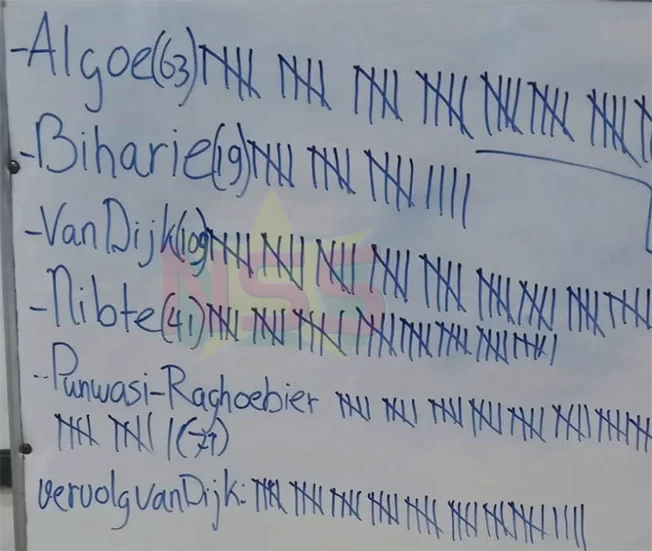 -Algoe(63)
-Biharie(19)
-VanDijk(109)
-Nibte(41)
-Punwasi-Raghoebier
(71)
vervolg van Dijk:
NSS